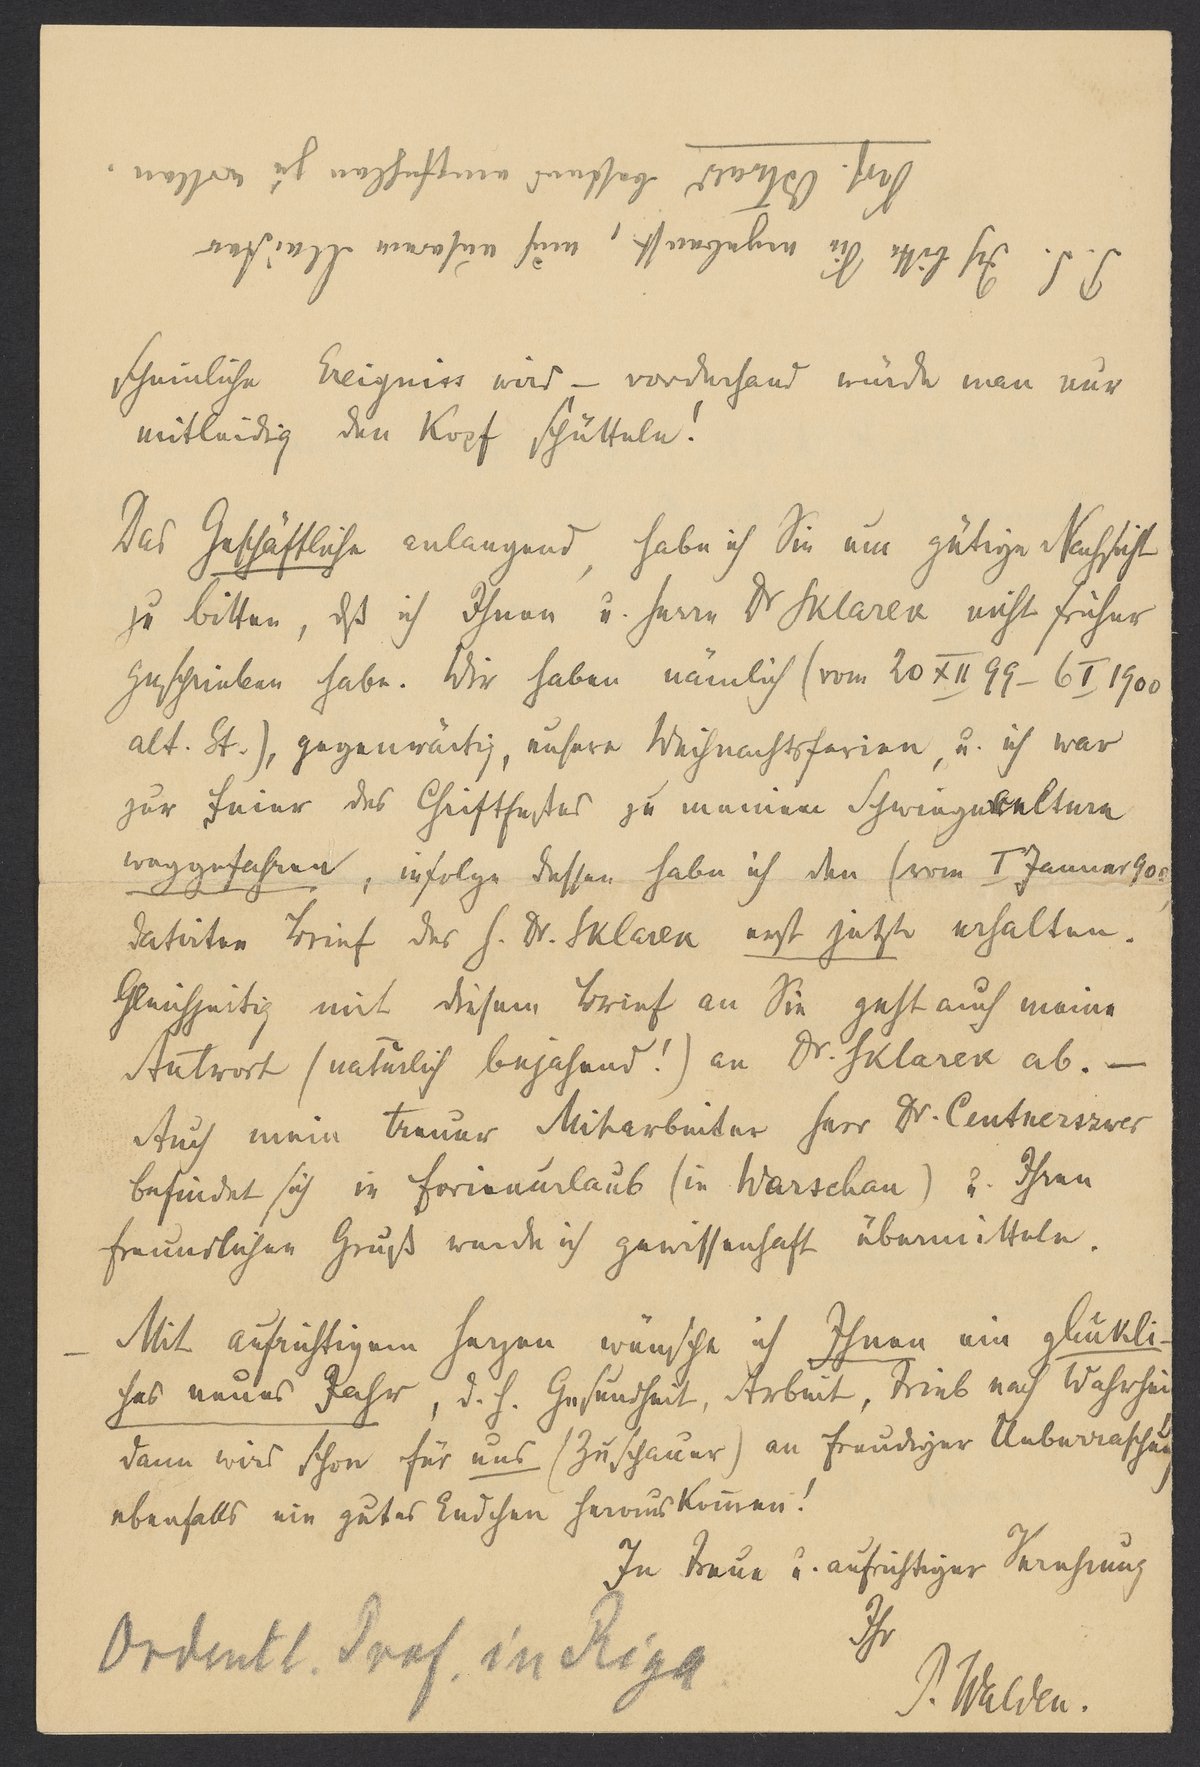 scheinliche Ereigniss wird – vorderhand würde man nur
mitleidig den Kopf schütteln!
Das Geschäftliche anlangend, habe ich Sie um gütige Nachsicht
zu bitten, dß ich Ihnen u. Herrn Dr Sklarek nicht früher
geschrieben habe. Wir haben nämlich (vom 20 XII 99 – 6 I 1900
alt. St.), gegenwärtig, unsere Weihnachtsferien, u. ich war
zur Feier des Christfestes zu meinen Schwiegereltern
weggefahren, infolge dessen habe ich den (vom I Januar 900
datirten Brief des H. Dr. Sklarek erst jetzt erhalten.
Gleichzeitig mit diesem Brief an Sie geht auch meine
Antwort (natürlich bejahend!) an Dr. Sklarek ab. –
Auch mein treuer Mitarbeiter Herr Dr. Centnerszwer
befindet sich in Ferienurlaub (in Warschau) u. Ihren
freundlichen Gruß werde ich gewissenhaft übermitteln.
– Mit aufrichtigem Herzen wünsche ich Ihnen ein glückli-
ches neues Jahr, d. h. Gesundheit, Arbeit, Trieb nach Wahrheit
dann wird schon für uns (Zuschauer) an freudiger Ueberraschung
ebenfalls ein gutes Endchen herauskom̅en!
In Treue u. aufrichtiger Verehrung
Ihr
P. Walden.
P. S. Ich bitte Sie ergebenst, mich unserem Meister
Prof. Ostwald bestens empfehlen zu wollen.
Ordentl. Prof. in Riga